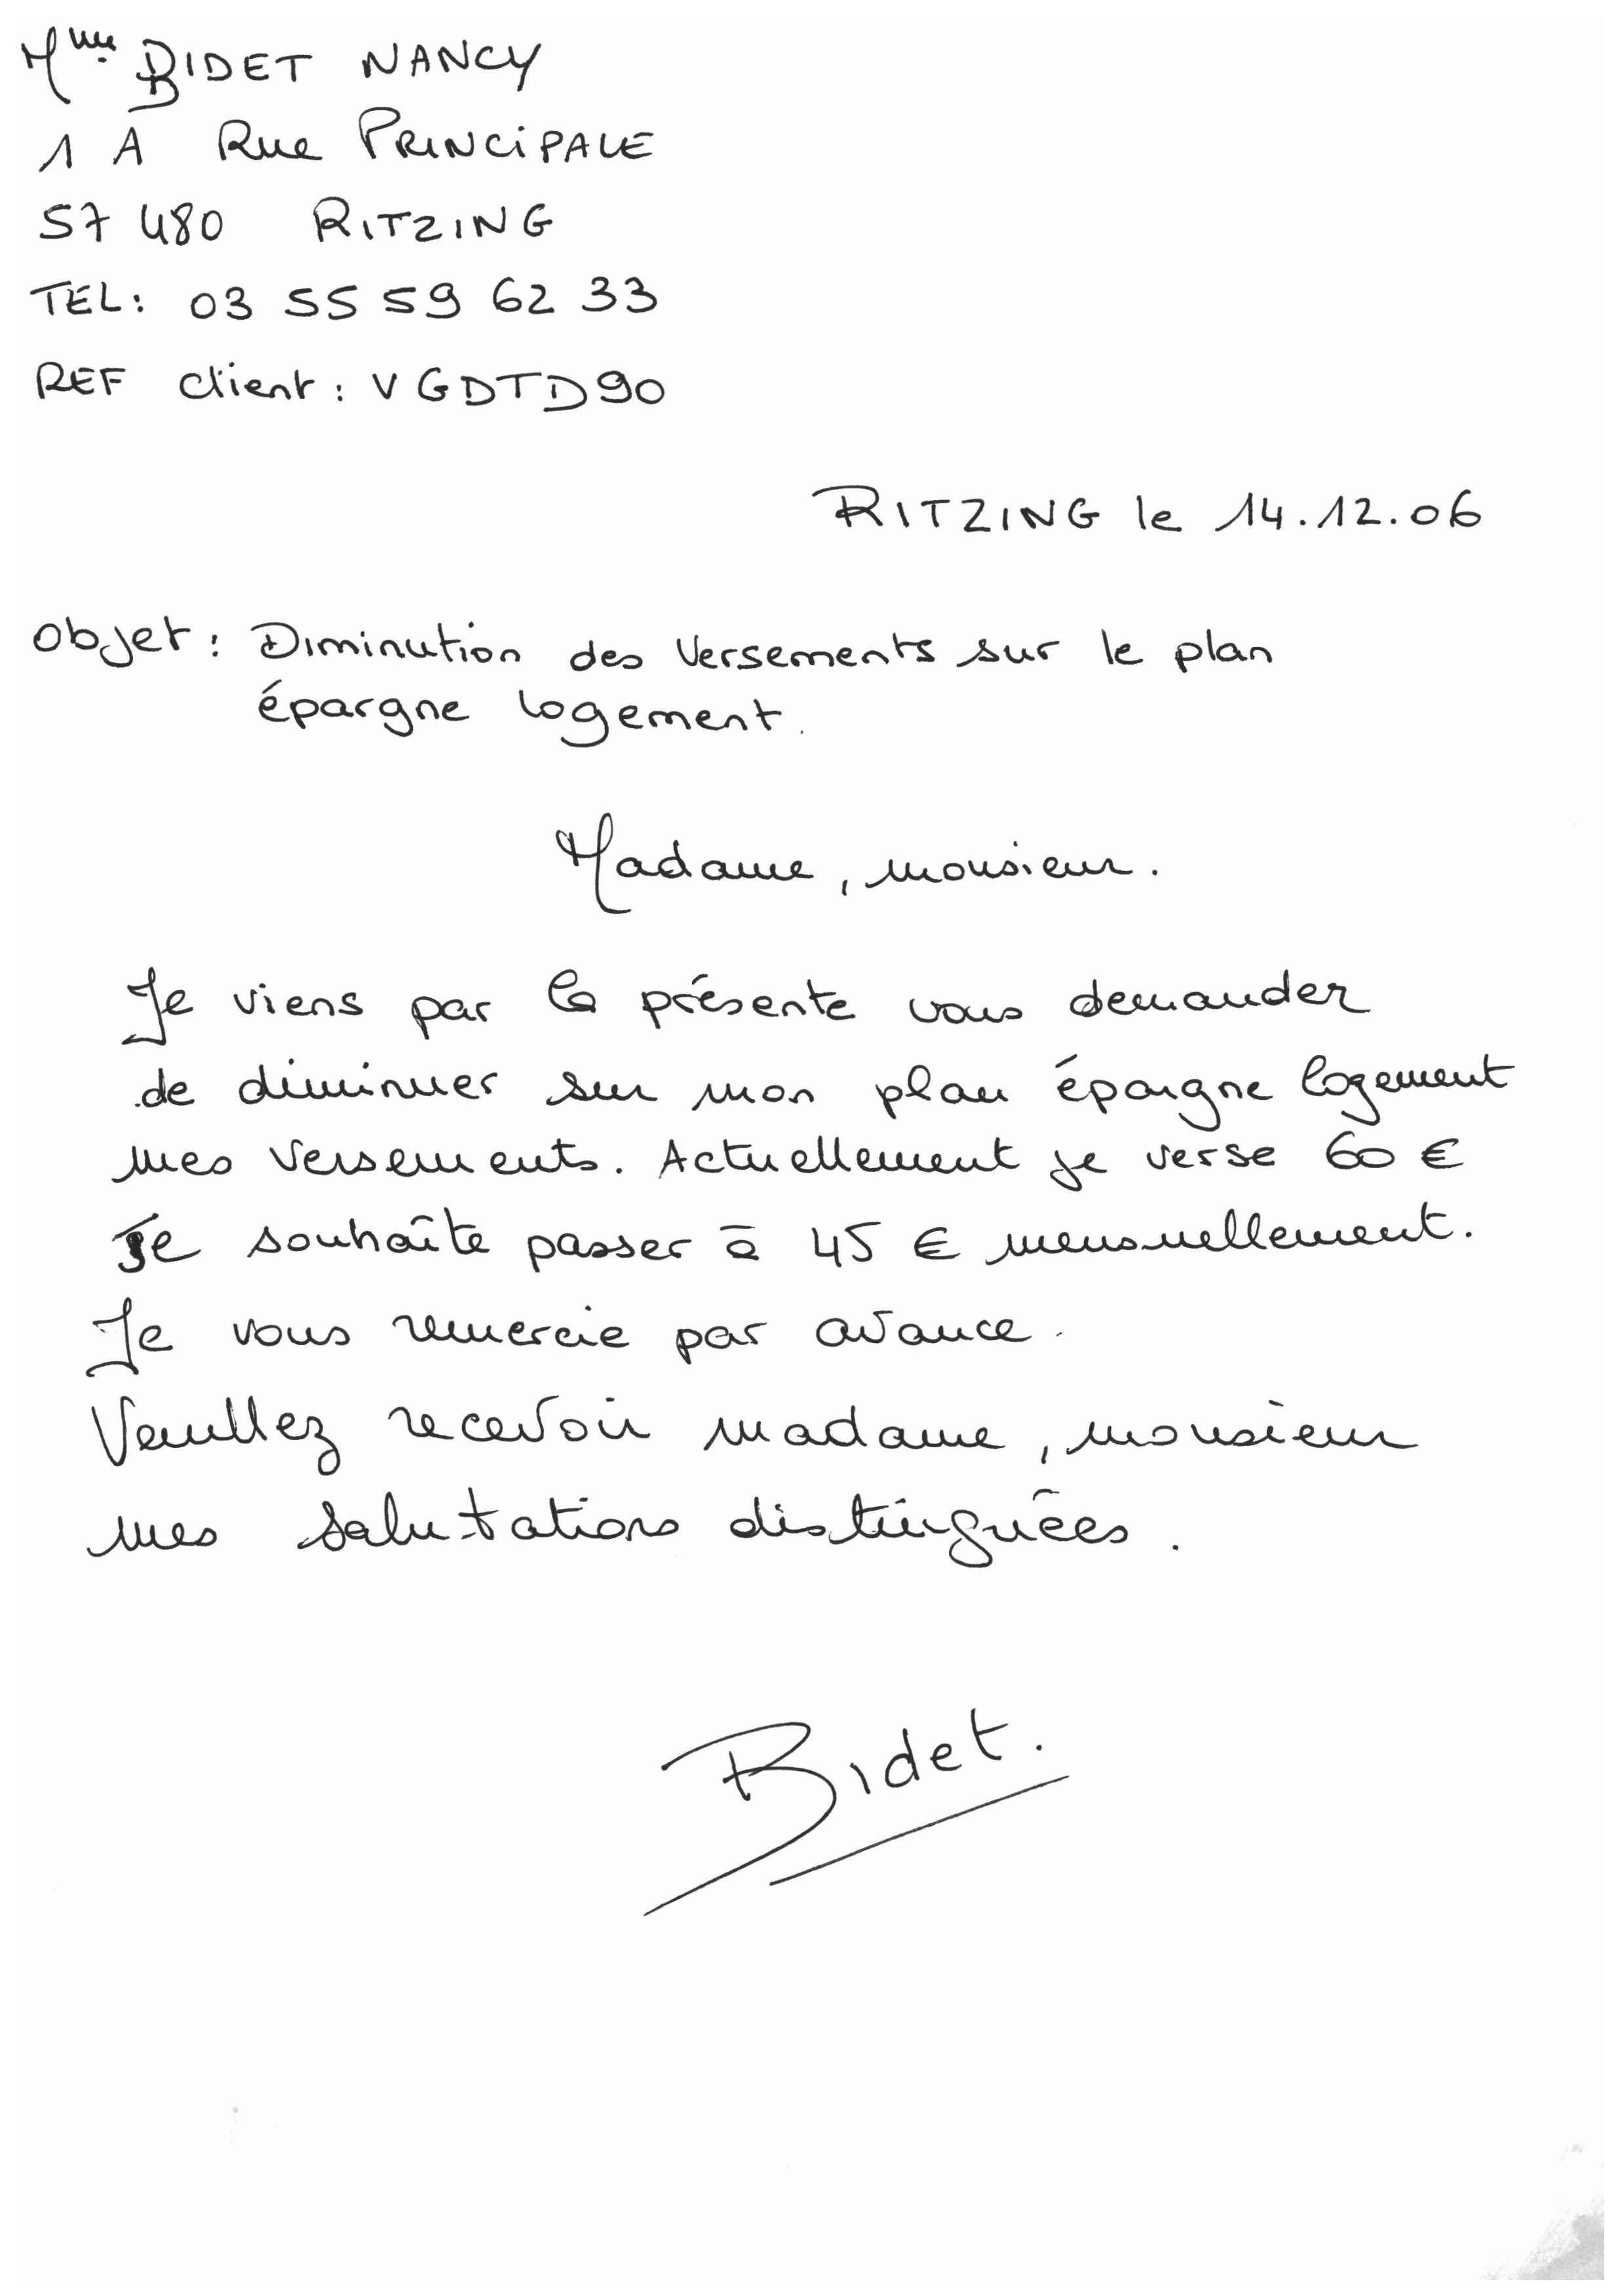 Mme BIDET NANCY
1 A Rue PRINCIPALE
57 480 RITZING
TEL: 03 55 59 62 33
REF client : VGDTD90
RITZING le 14.12.06
Objet : Diminution des Versements sur le plan
épargne logement.
Madame, monsieur.
Je viens par la présente vous demander
de diminuer sur mon plan épargne logement
mes versements. Actuellement je verse 60 €
Je souhaîte passer à 45 € mensuellement.
Je vous remercie par avance.
Veuillez recevoir madame, monsieur
mes salutations distinguées.
Bidet.